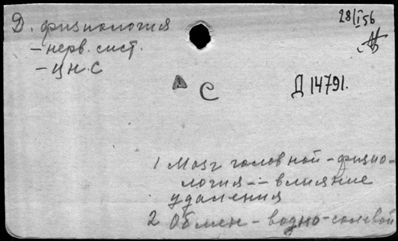 Д. физиология
28/I 56
– нерв. сист.
– ц.н.с
С
Д 14791.
1 Мозг головной – физио-
логия – влияние
удаления
2 Обмен – водно-солевой